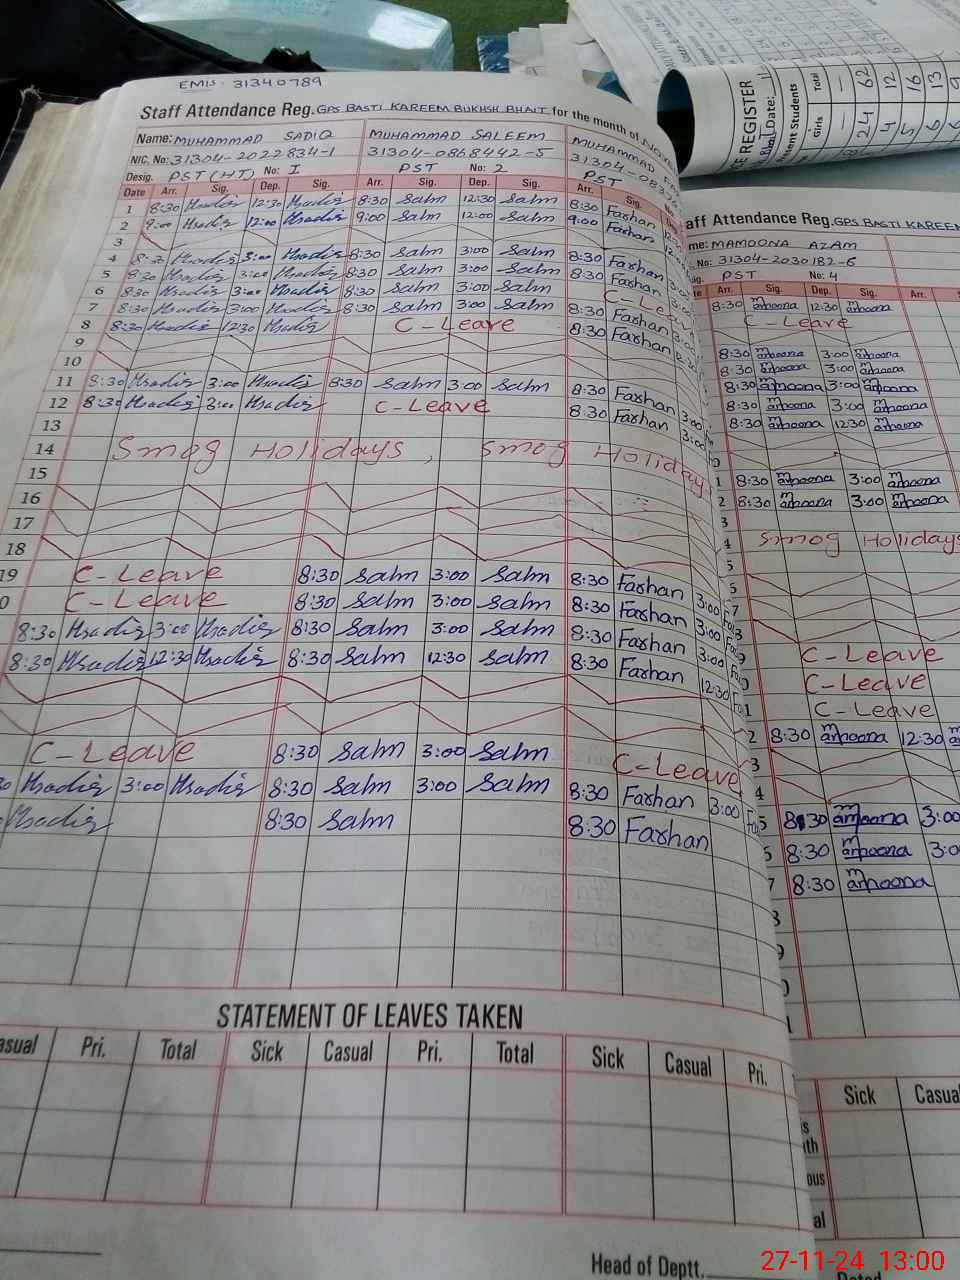 EMIS: 31340789
Staff Attendance Reg. GPS BASTI KAREEM BUKHSH BHAIT for the month of
Name: MUHAMMAD SADIQ MUHAMMAD SALEEM MUHAMMAD
NIC. No: 31304-2022834-1 31304-0868442-5 31304-
Desig. PST (HT) No: I PST No: 2 PST
Date Arr. Sig. Dep. Sig. Arr. Sig. Dep. Sig. Arr. Sig.
1 8:30 Msadiq 12:30 Msadiq 8:30 Salm 12:30 Salm 8:30 Farhan
2 9:00 Msadiq 12:00 Msadiq 9:00 Salm 12:00 Salm 9:00 Farhan
3
4 8:30 Msadiq 3:00 Msadiq 8:30 Salm 3:00 Salm 8:30 Farhan
5 8:30 Msadiq 3:00 Msadiq 8:30 Salm 3:00 Salm 8:30 Farhan
6 8:30 Msadiq 3:00 Msadiq 8:30 Salm 3:00 Salm C-Leave
7 8:30 Msadiq 3:00 Msadiq 8:30 Salm 3:00 Salm 8:30 Farhan
8 8:30 Msadiq 12:30 Msadiq C-Leave 8:30 Farhan
9
10
11 8:30 Msadiq 3:00 Msadiq 8:30 Salm 3:00 Salm 8:30 Farhan 3:00
12 8:30 Msadiq 3:00 Msadiq C-Leave 8:30 Farhan 3:00
13
14 Smog Holidays, Smog Holidays
15
16
17
18
19 C-Leave 8:30 Salm 3:00 Salm 8:30 Farhan 3:00
0 C-Leave 8:30 Salm 3:00 Salm 8:30 Farhan 3:00
8:30 Msadiq 3:00 Msadiq 8:30 Salm 3:00 Salm 8:30 Farhan 3:00
8:30 Msadiq 12:30 Msadiq 8:30 Salm 12:30 Salm 8:30 Farhan 12:30
C-Leave 8:30 Salm 3:00 Salm C-Leave
Msadiq 3:00 Msadiq 8:30 Salm 3:00 Salm 8:30 Farhan 3:00
Msadiq 8:30 Salm 8:30 Farhan
STATEMENT OF LEAVES TAKEN
asual Pri. Total Sick Casual Pri. Total Sick Casual Pri.
Head of Deptt.
E REGISTER
Date: 11
Students
Girls Total
24 62
4 12
5 16
6 13
aff Attendance Reg. GPS BASTI KAREEM
me: MAMOONA AZAM
No: 31304-2030182-6
PST No: 4
Arr. Sig. Dep. Sig. Arr.
8:30 mamoona 12:30 mamoona
C-Leave
8:30 mamoona 3:00 mamoona
8:30 mamoona 3:00 mamoona
8:30 mamoona 3:00 mamoona
8:30 mamoona 3:00 mamoona
8:30 mamoona 12:30 mamoona
8:30 mamoona 3:00 mamoona
8:30 mamoona 3:00 mamoona
Smog Holidays
C-Leave
C-Leave
C-Leave
8:30 mamoona 12:30
8:30 mamoona 3:00
8:30 mamoona 3:0
8:30 mamoona
Sick Casua
27-11-24 13:00